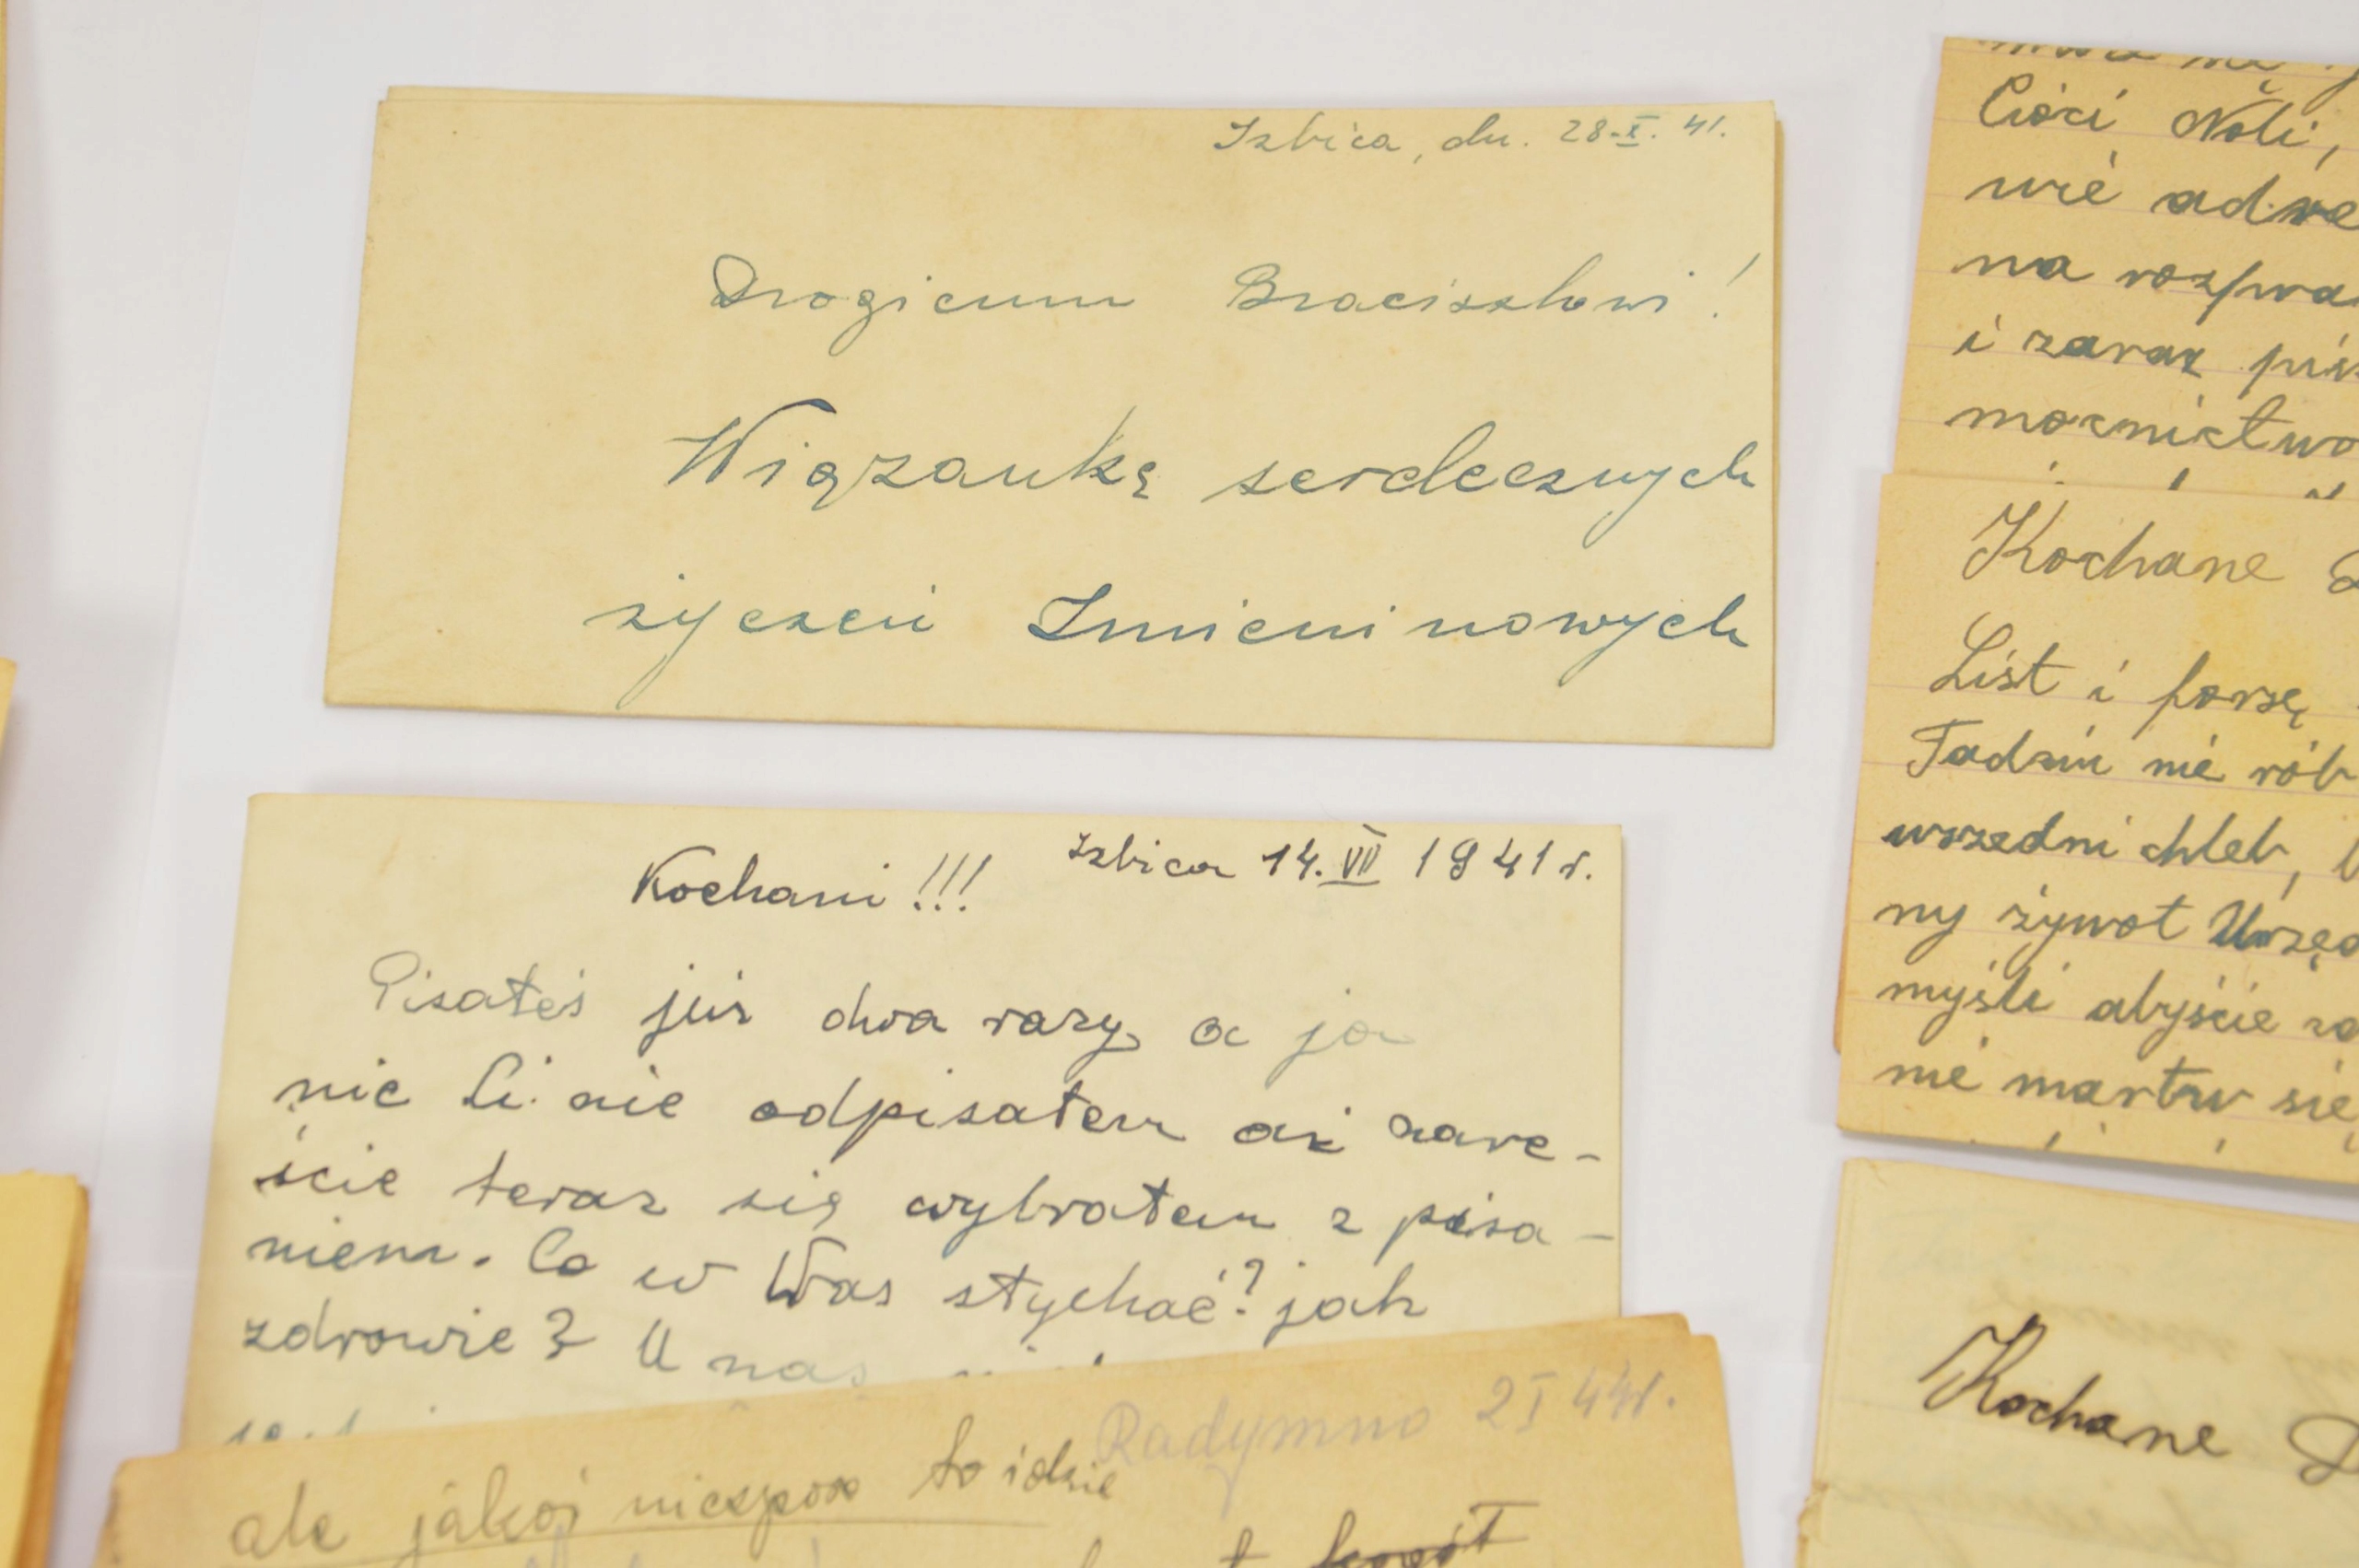 Izbica, dn. 28.X. 41.
Drogiemu Braciszkowi!
Wiązankę serdecznych
życzeń Imieninowych
Izbica 14.VII 1941 r.
Kochani!!!
Pisałeś już dwa razy, a ja
nic Ci nie odpisałem aż nare-
ście teraz się wybrałem z pisa-
niem. Co w Was słychać? jak
zdrowie? U nas
Radymno 2 I 44r.
ale jakoś niesporo to idzie
Cioci Noli,
wie adwo
na rozpra
i zaraz pis
mocnictwo
Kochane
List i forsę
Tadziu nie rób
wszedni chleb,
ny żywot Urzęd
myśli abyście
nie martw się
Kochane D